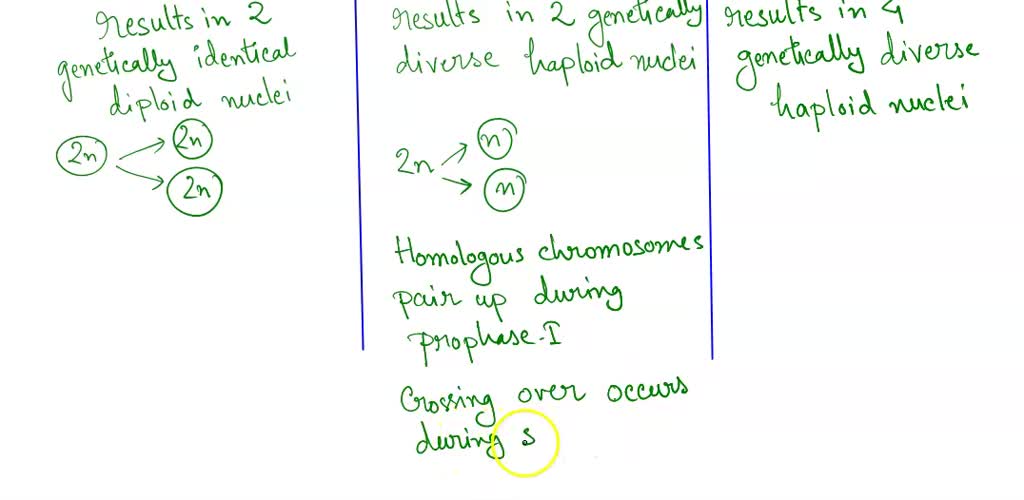 results in 2
genetically identical
diploid nuclei
2n
2n
2n
results in 2 genetically
diverse haploid nuclei
2n
n
n
Homologous chromosomes
pair up during
prophase-I
Crossing over occurs
during s
results in 4
genetically diverse
haploid nuclei